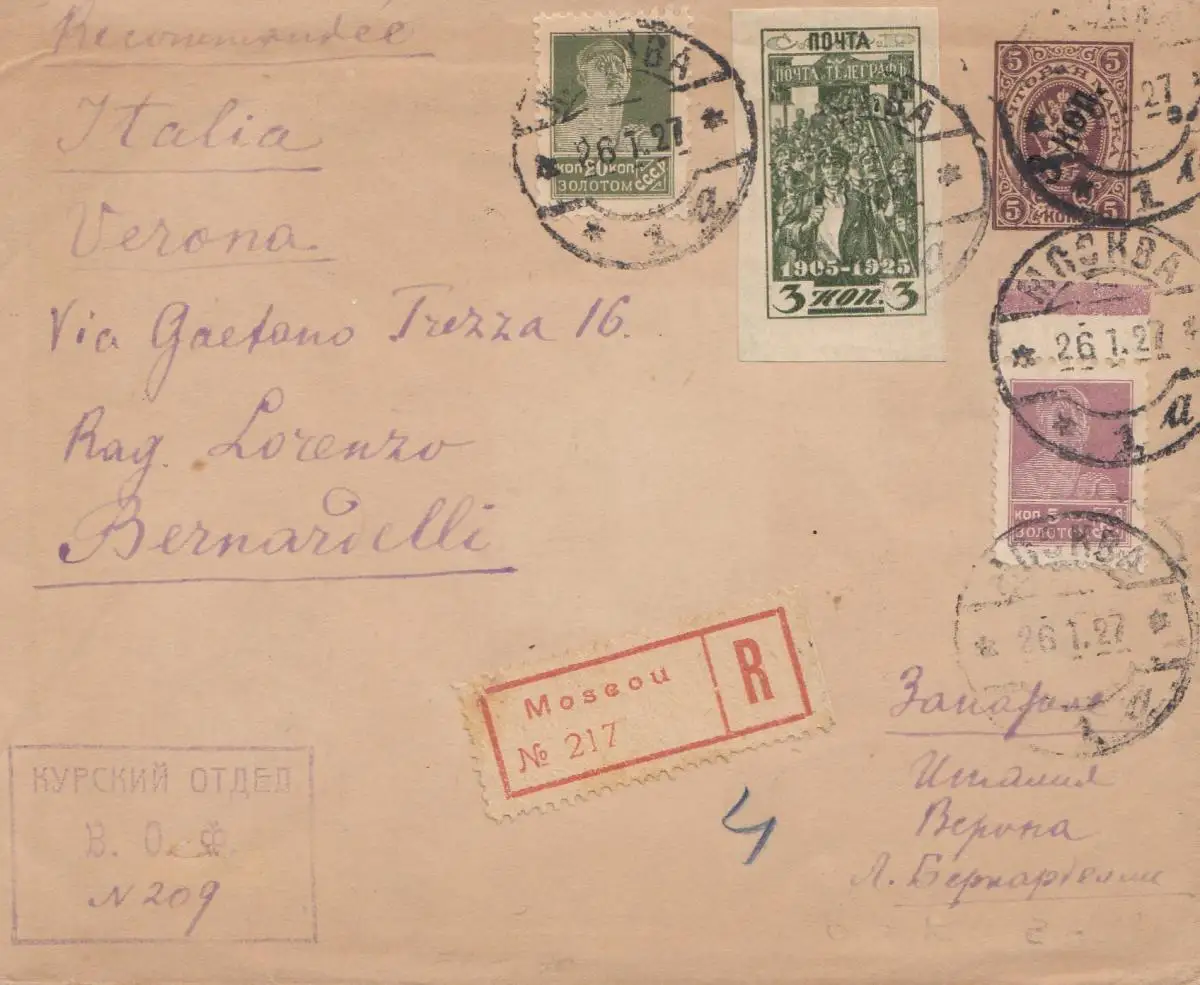 Recommandée
Italia
Verona
Via Gaetano Trezza 16.
Rag. Lorenzo
Bernardelli
КОП 20 КОП
ЗОЛОТОМ СССР
26.1.27
1 а
ПОЧТА
ПОЧТА ТЕЛЕГРАФЪ
1905-1925
3 КОП. 3
5 5
МАРКА
3 коп.
5 КОП 5
27
1
МОСКВА
26.1.27
1 а
КОП 5
ЗОЛОТОМ
МОСКВА
26.1.27
1 а
Moscou
№ 217
R
Италия
Верона
Л. Бернарделли
КУРСКИЙ ОТДЕЛ
В. О. Ф.
N 209
4